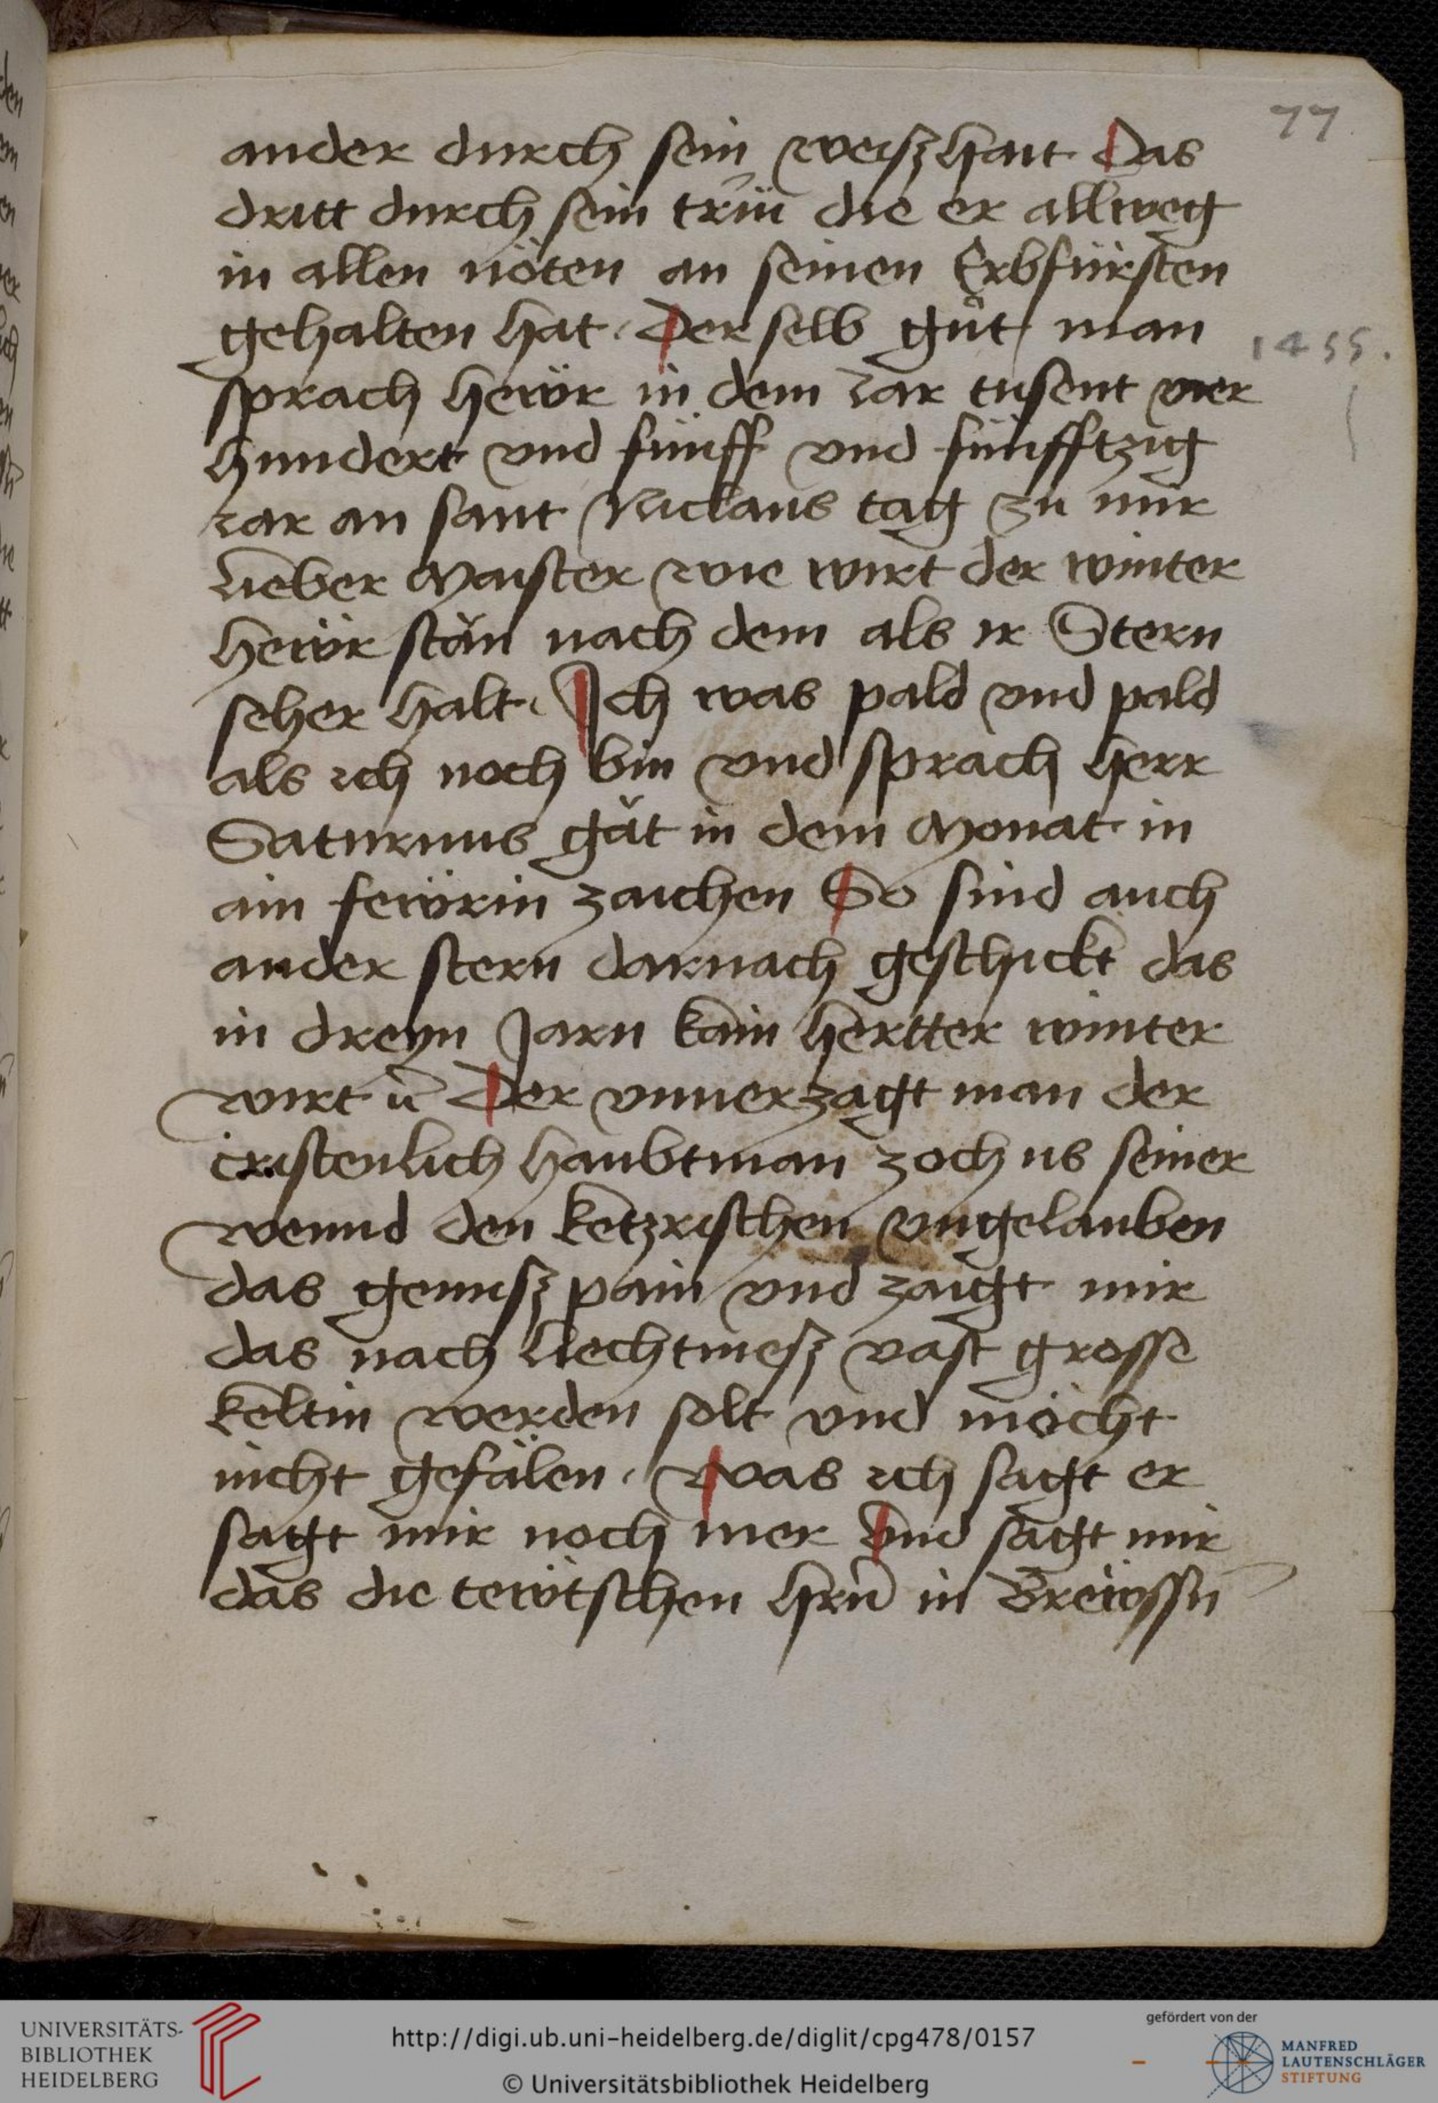 77
ander durch sein weiszhait Das
dritt durch sein trüü die er allweg
in allen nöten an seinen Erbfürsten
gehalten hat. Der selb gůt man
1455.
sprach hewr in dem Iar tusent vier
hundert vnd fünff vnd fünfftzig
iar an sant Niclaus tag zu mir
Lieber Maister wie wirt der winter
hewr stǎn nach dem als ir Stern
seher halt. Ich was pald vnd pald
als ich noch bin vnd sprach herr
Saturnus gǎt in dem Monat in
ain fewrin zaichen So sind auch
ander stern darnach geschickt das
in dreyn Jarn kain hertter winter
wirt ꝛc Der vnuerzagt man der
cristenlich haubtman zoch us seiner
den ketzrischen vngelauben
das gennsz pain vnd zaigt mir
das nach Liechtmesz vast grosse
keltin werden solt vnd möcht
nicht gefälen. Was ich sagt er
sagt mir noch mer Vnd sagt mir
das die tewtschen hrn̄ in Brewssn̄
UNIVERSITÄTS-
BIBLIOTHEK
HEIDELBERG
http://digi.ub.uni-heidelberg.de/diglit/cpg478/0157
© Universitätsbibliothek Heidelberg
gefördert von der
MANFRED
LAUTENSCHLÄGER
STIFTUNG